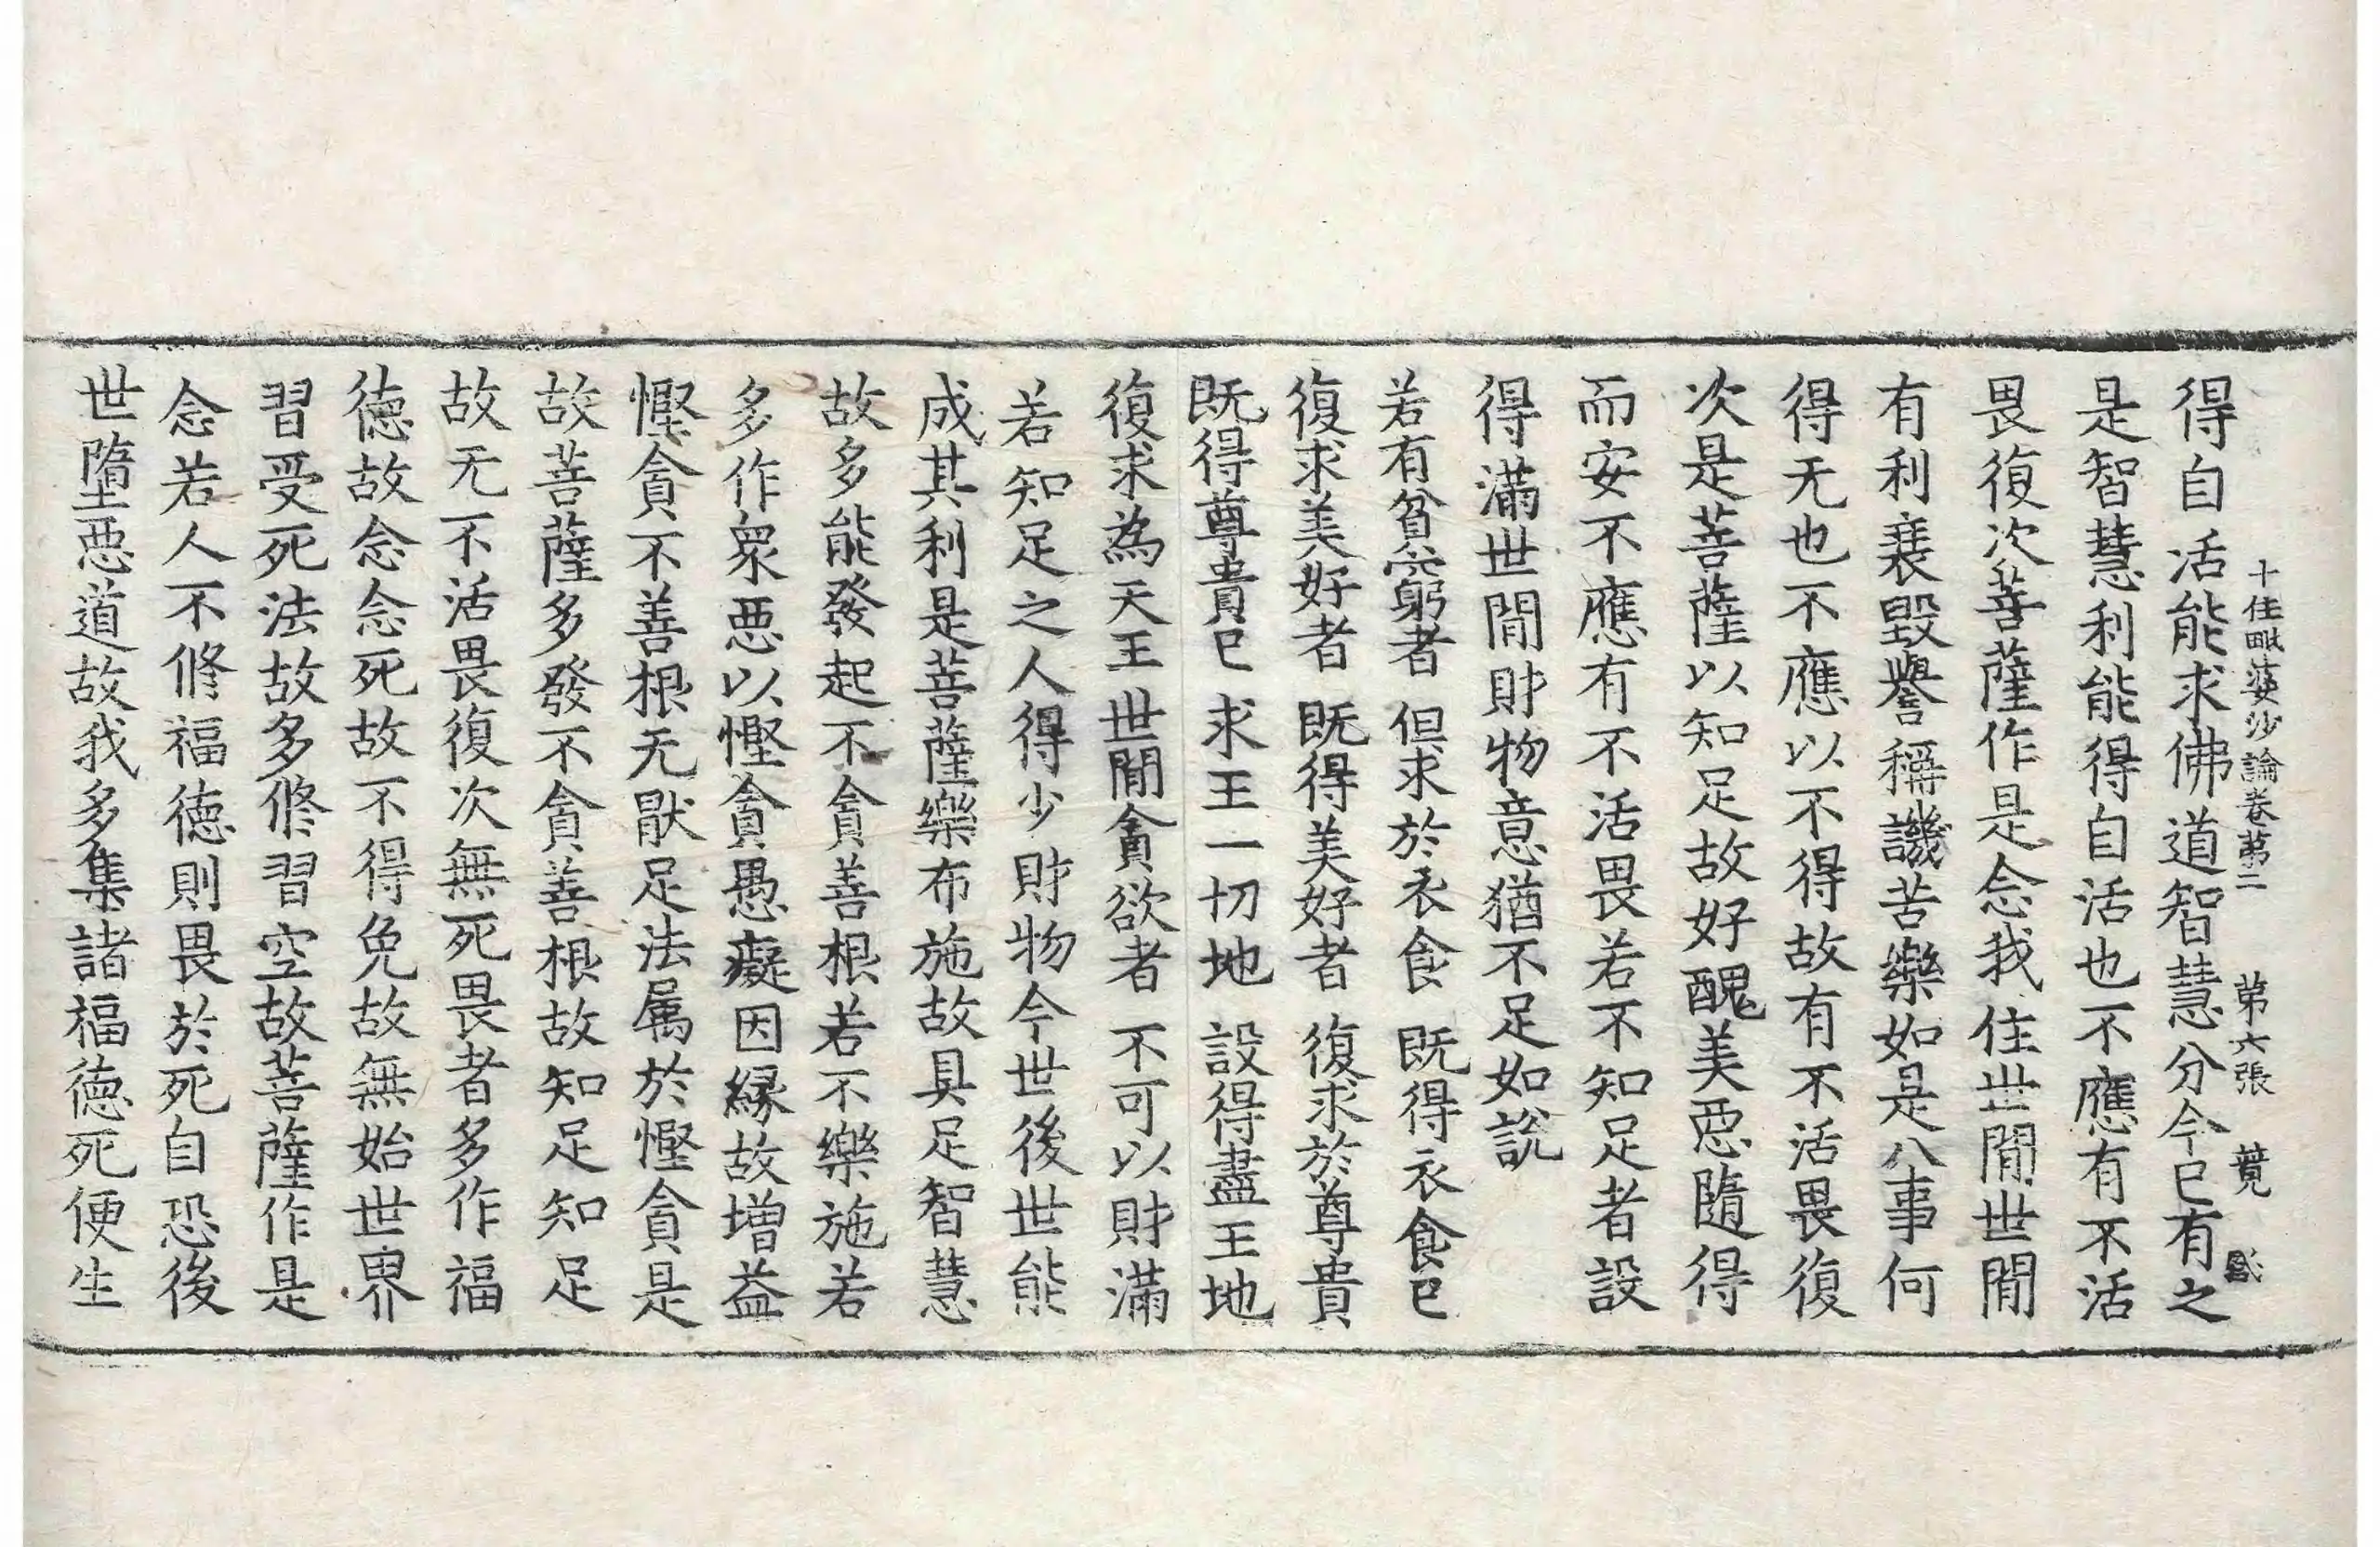 十住毗婆沙論卷苐二　苐六張　覓
得自活能求佛道智慧分今已有之
是智慧利能得自活也不應有不活
畏復次菩薩作是念我住世閒世閒
有利衰毀譽稱譏苦樂如是八事何
得无也不應以不得故有不活畏復
次是菩薩以知足故好醜美惡隨得
而安不應有不活畏若不知足者設
得滿世閒財物意猶不足如說
若有貧窮者　但求於衣食　既得衣食已
復求美好者　既得美好者　復求於尊貴
既得尊貴已　求王一切地　設得盡王地
復求為天王　世閒貪欲者　不可以財滿
若知足之人得少財物今世後世能
成其利是菩薩樂布施故具足智慧
故多能發起不貪善根若不樂施若
多作衆惡以慳貪愚癡因緣故增益
慳貪不善根无猒足法属於慳貪是
故菩薩多發不貪善根故知足知足
故无不活畏復次無死畏者多作福
德故念念死故不得免故無始世界
習受死法故多修習空故菩薩作是
念若人不修福德則畏於死自恐後
世墮惡道故我多集諸福德死便生